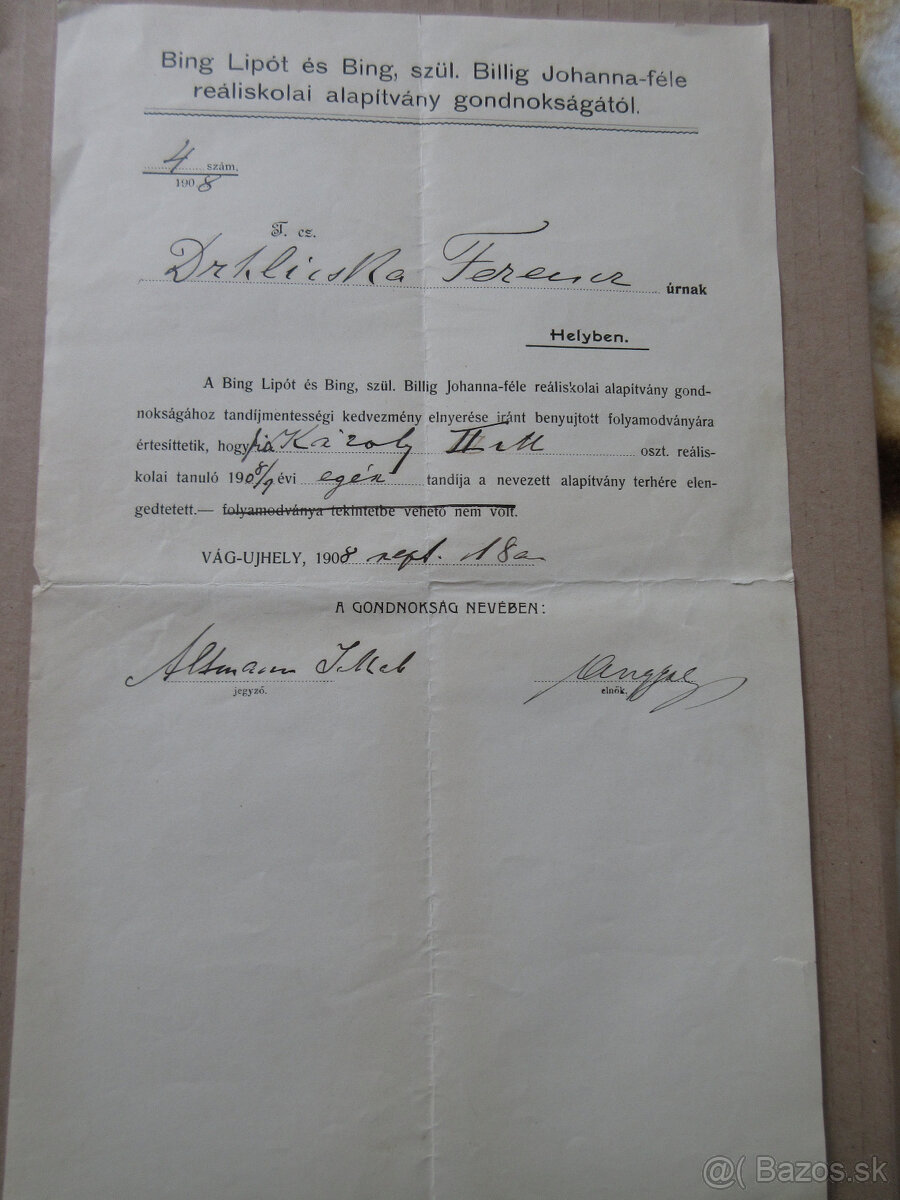 Bing Lipót és Bing, szül. Billig Johanna-féle
reáliskolai alapítvány gondnokságától.
4 szám.
1908
T. cz.
Drhlicska Ferencz úrnak
Helyben.
A Bing Lipót és Bing, szül. Billig Johanna-féle reáliskolai alapítvány gond-
nokságához tandíjmentességi kedvezmény elnyerése iránt benyujtott folyamodványára
értesíttetik, hogy fia Károly II oszt. reális-
kolai tanuló 1908/9 évi egész tandíja a nevezett alapítvány terhére elen-
gedtetett.— folyamodványa tekintetbe vehető nem volt.
VÁG-UJHELY, 1908 sept. 18án
A GONDNOKSÁG NEVÉBEN:
Altmann Angyal
jegyző. elnök.
@( Bazos.sk